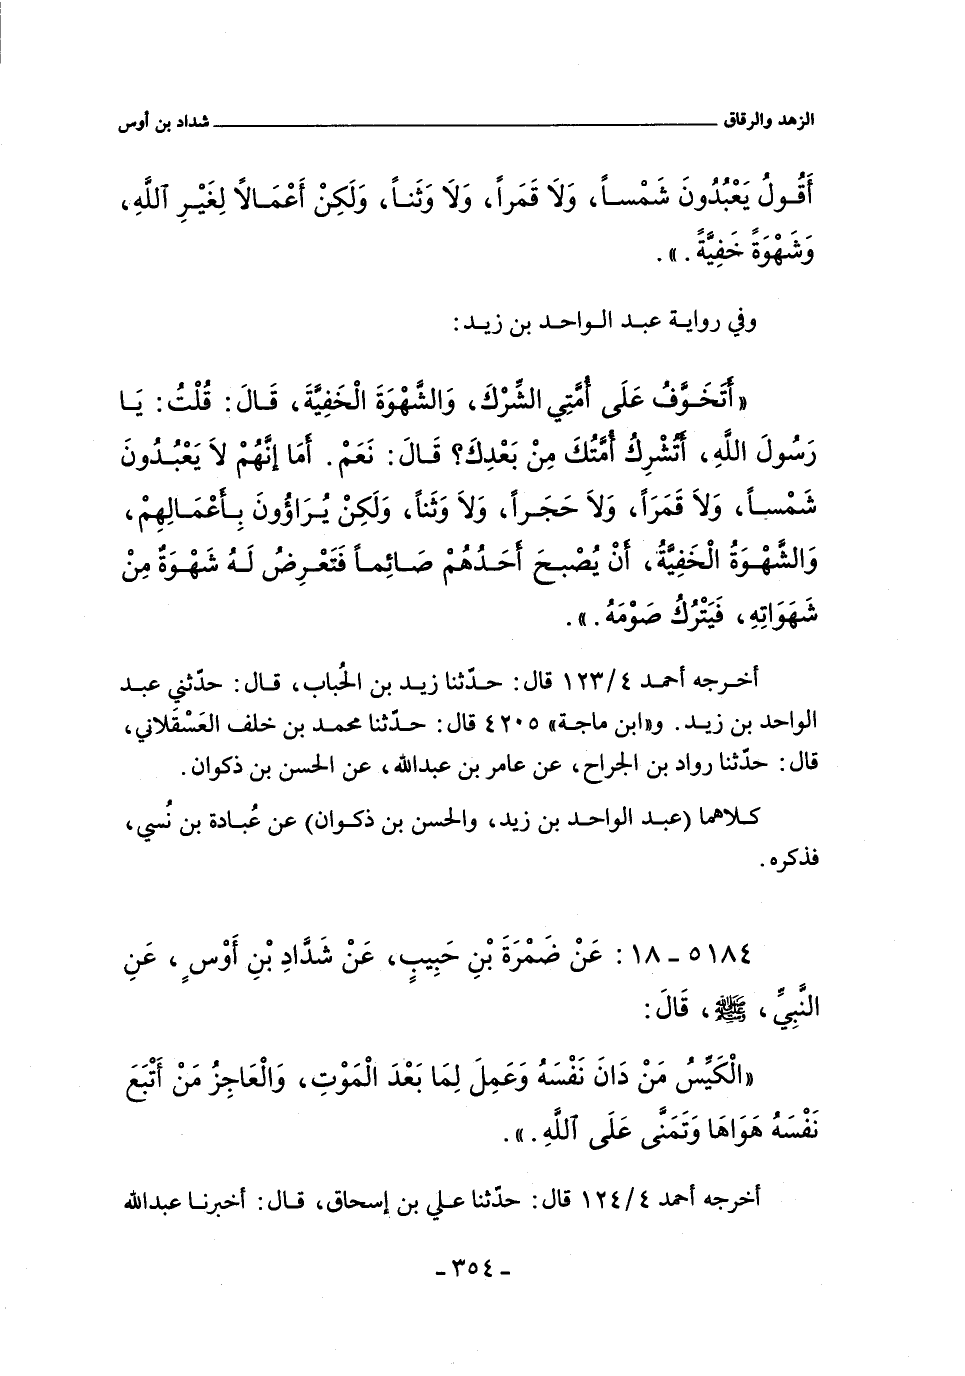 الزهد والرقاق ــــــــــ شداد بن أوس
أَقُولُ يَعْبُدُونَ شَمْساً، وَلَا قَمَراً، وَلَا وَثَناً، وَلَكِنْ أَعْمَالًا لِغَيْرِ ٱللَّهِ،
وَشَهْوَةً خَفِيَّةً.».
وفي رواية عبد الواحد بن زيد:
«أَتَخَوَّفُ عَلَى أُمَّتِي الشِّرْكَ، وَالشَّهْوَةَ الْخَفِيَّةَ، قَالَ: قُلْتُ: يَا
رَسُولَ اللَّهِ، أَتُشْرِكُ أُمَّتُكَ مِنْ بَعْدِكَ؟ قَالَ: نَعَمْ. أَمَا إِنَّهُمْ لاَ يَعْبُدُونَ
شَمْساً، وَلاَ قَمَرَاً، وَلاَ حَجَراً، وَلاَ وَثَناً، وَلَكِنْ يُرَاؤُونَ بِأَعْمَالِهِمْ،
وَالشَّهْوَةُ الْخَفِيَّةُ، أَنْ يُصْبِحَ أَحَدُهُمْ صَائِماً فَتَعْرِضُ لَهُ شَهْوَةٌ مِنْ
شَهَوَاتِهِ، فَيَتْرُكُ صَوْمَهُ.».
أخرجه أحمد ٤/١٢٣ قال: حدّثنا زيد بن الحُباب، قال: حدّثني عبد
الواحد بن زيد. و«ابن ماجة» ٤٢٠٥ قال: حدّثنا محمد بن خلف العَسْقلاني،
قال: حدّثنا رواد بن الجراح، عن عامر بن عبدالله، عن الحسن بن ذكوان.
كلاهما (عبد الواحد بن زيد، والحسن بن ذكوان) عن عُبادة بن نُسي،
فذكره.
٥١٨٤ - ١٨: عَنْ ضَمْرَةَ بْنِ حَبِيبٍ، عَنْ شَدَّادِ بْنِ أَوْسٍ، عَنِ
النَّبِيِّ، ﷺ، قَالَ:
«الْكَيِّسُ مَنْ دَانَ نَفْسَهُ وَعَمِلَ لِمَا بَعْدَ الْمَوْتِ، وَالْعَاجِزُ مَنْ أَتْبَعَ
نَفْسَهُ هَوَاهَا وَتَمَنَّى عَلَى ٱللَّهِ.».
أخرجه أحمد ٤/١٢٤ قال: حدّثنا علي بن إسحاق، قال: أخبرنا عبدالله
- ٣٥٤ -